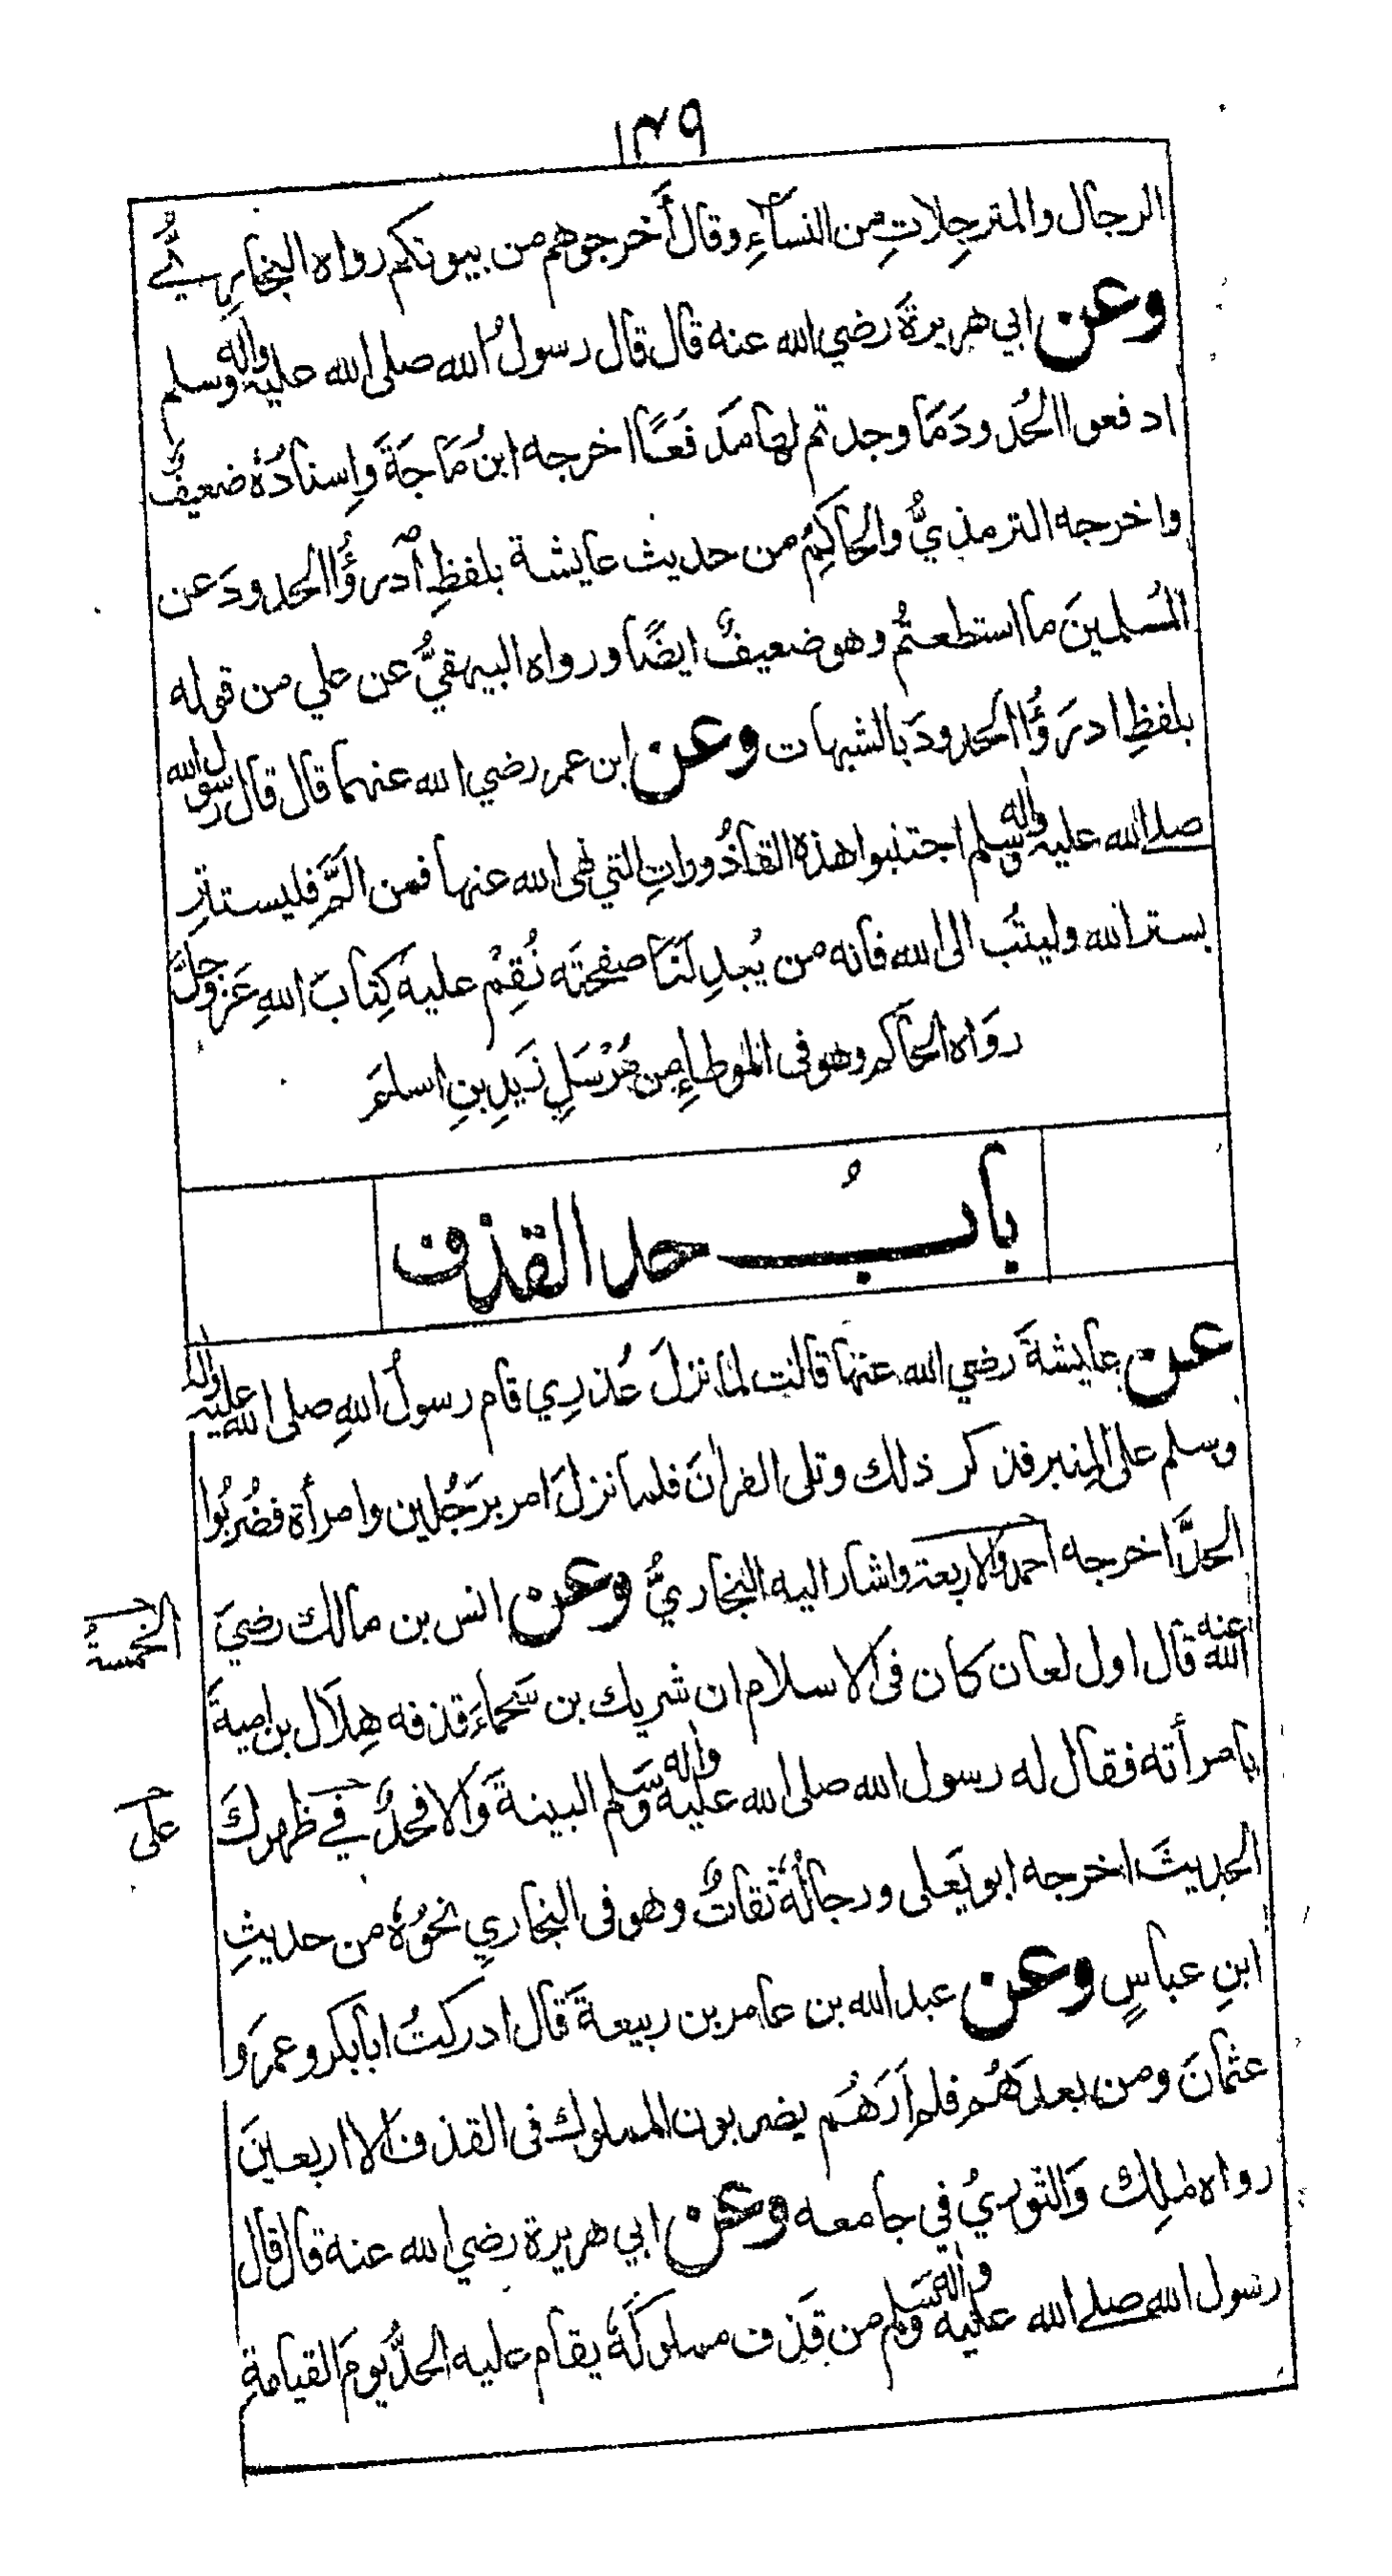 ١٣٩
الرجال والمترجِلاتِ من النساءِ وقال أَخرجوهم من بيوتكم رواه البخاريُّ
وعن ابي هريرةَ رضي الله عنه قال قال رسولُ الله صلى الله عليه واله وسلم
ادفعوا الحُدودَ مَا وجدتم لها مَدفَعًا اخرجه ابنُ مَاجَةَ وَاِسنادُهٗ ضعيفٌ
واخرجه الترمذيُّ والحاكِمُ من حديث عايشة بلفظِ اَدرؤُا الحدودَ عن
المُسلمينَ ما استطعتُم وهو ضعيفٌ ايضًا ورواه البيهقيُّ عن علي من قوله
بلفظِ ادرَؤُا الحدودَ بالشبهات وعن ابن عمر رضي الله عنهما قال قال رسول الله
صلى الله عليه واله وسلم اجتنبوا هذه القاذُوراتِ التي نهى الله عنها فمن اَلَمَّ فليستتِر
بستر الله وليتُب الى الله فانه من يُبدِ لَنَا صفحتَه نُقِمْ عليه كِتابَ اللهِ عَز وجلَّ
رَوَاه الحاكم وهو فى الموطاءِ من مُرْسَلِ زَيدِ بنِ اسلمَ
بابُ حد القذف
عن عايشةَ رضي الله عنها قالت لما نزلَ عُذرِي قام رسولُ اللهِ صلى الله عليه واله
وسلم على المِنبر فذكر ذلك وتلى القرانَ فلما نزلَ امر برَجُلين وامرأة فضُربُوا
الحدَّ اخرجه احمد والاربعة واشار اليه البخاريُّ وعن انس بن مالك رضيَ
الخمسةُ
الله عنه قال اول لعان كان فى الاسلام ان شريك بن سَحماءَ قذفه هِلَال بن اميةَ
بامرأته فقال له رسول الله صلى الله عليه واله وسلم البينةَ وَالا فحدٌّ في ظهركَ
على
الحديثَ اخرجه ابو يَعلى ورجالُهٗ ثقاتٌ وهو فى البخاريِ نحوُهٗ من حديثِ
ابنِ عباسٍ وعن عبد الله بن عامر بن ربيعةَ قال ادركتُ ابابكر وعمرَ و
عثمانَ ومن بعدَهُم فلم اَرَهُم يضربون المملوك فى القذف الا اربعينَ
رواه مٰلِك وَالثوريُ في جامعه وعن ابي هريرة رضي الله عنه قال قال
رسول الله صلى الله عليه واله وسلم من قَذف مملوكَهٗ يقام عليه الحدُّ يومَ القيامةِ